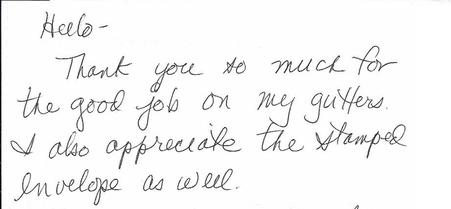 Hello-
Thank you so much for
the good job on my gutters.
I also appreciate the stamped
envelope as well.